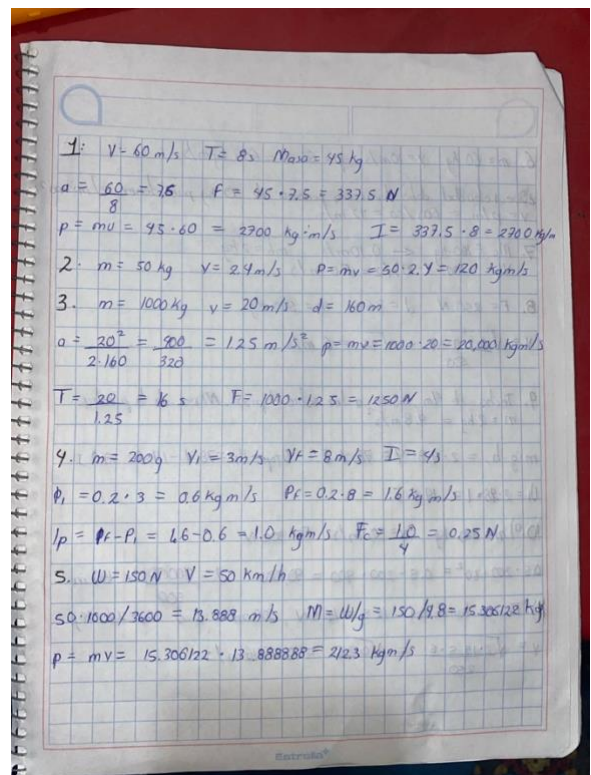 1: V= 60 m/s T= 8s Masa= 45 kg
a = 60/8 = 7.5 F = 45 · 7.5 = 337.5 N
P = mv = 45 · 60 = 2700 kg·m/s I = 337.5 · 8 = 2700 kg/m
2. m = 50 kg V = 2.4 m/s P = mv = 50 · 2.4 = 120 kgm/s
3. m = 1000 kg v = 20 m/s d = 160 m
a = 20²/2·160 = 400/320 = 1.25 m/s² p = mv = 1000 · 20 = 20,000 kgm/s
T = 20/1.25 = 16 s F = 1000 · 1.25 = 1250 N
4. m = 200g V₁ = 3m/s Vf = 8m/s I = 4s
P₁ = 0.2 · 3 = 0.6 kg m/s Pf = 0.2 · 8 = 1.6 kg m/s
Ip = Pf - P₁ = 1.6 - 0.6 = 1.0 kgm/s Fc = 1.0/4 = 0.25 N
5. W = 150 N V = 50 km/h
50 · 1000 / 3600 = 13.888 m/s M = W/g = 150 / 9.8 = 15.306122 kg
p = mv = 15.306122 · 13.888888 = 2123 kgm/s